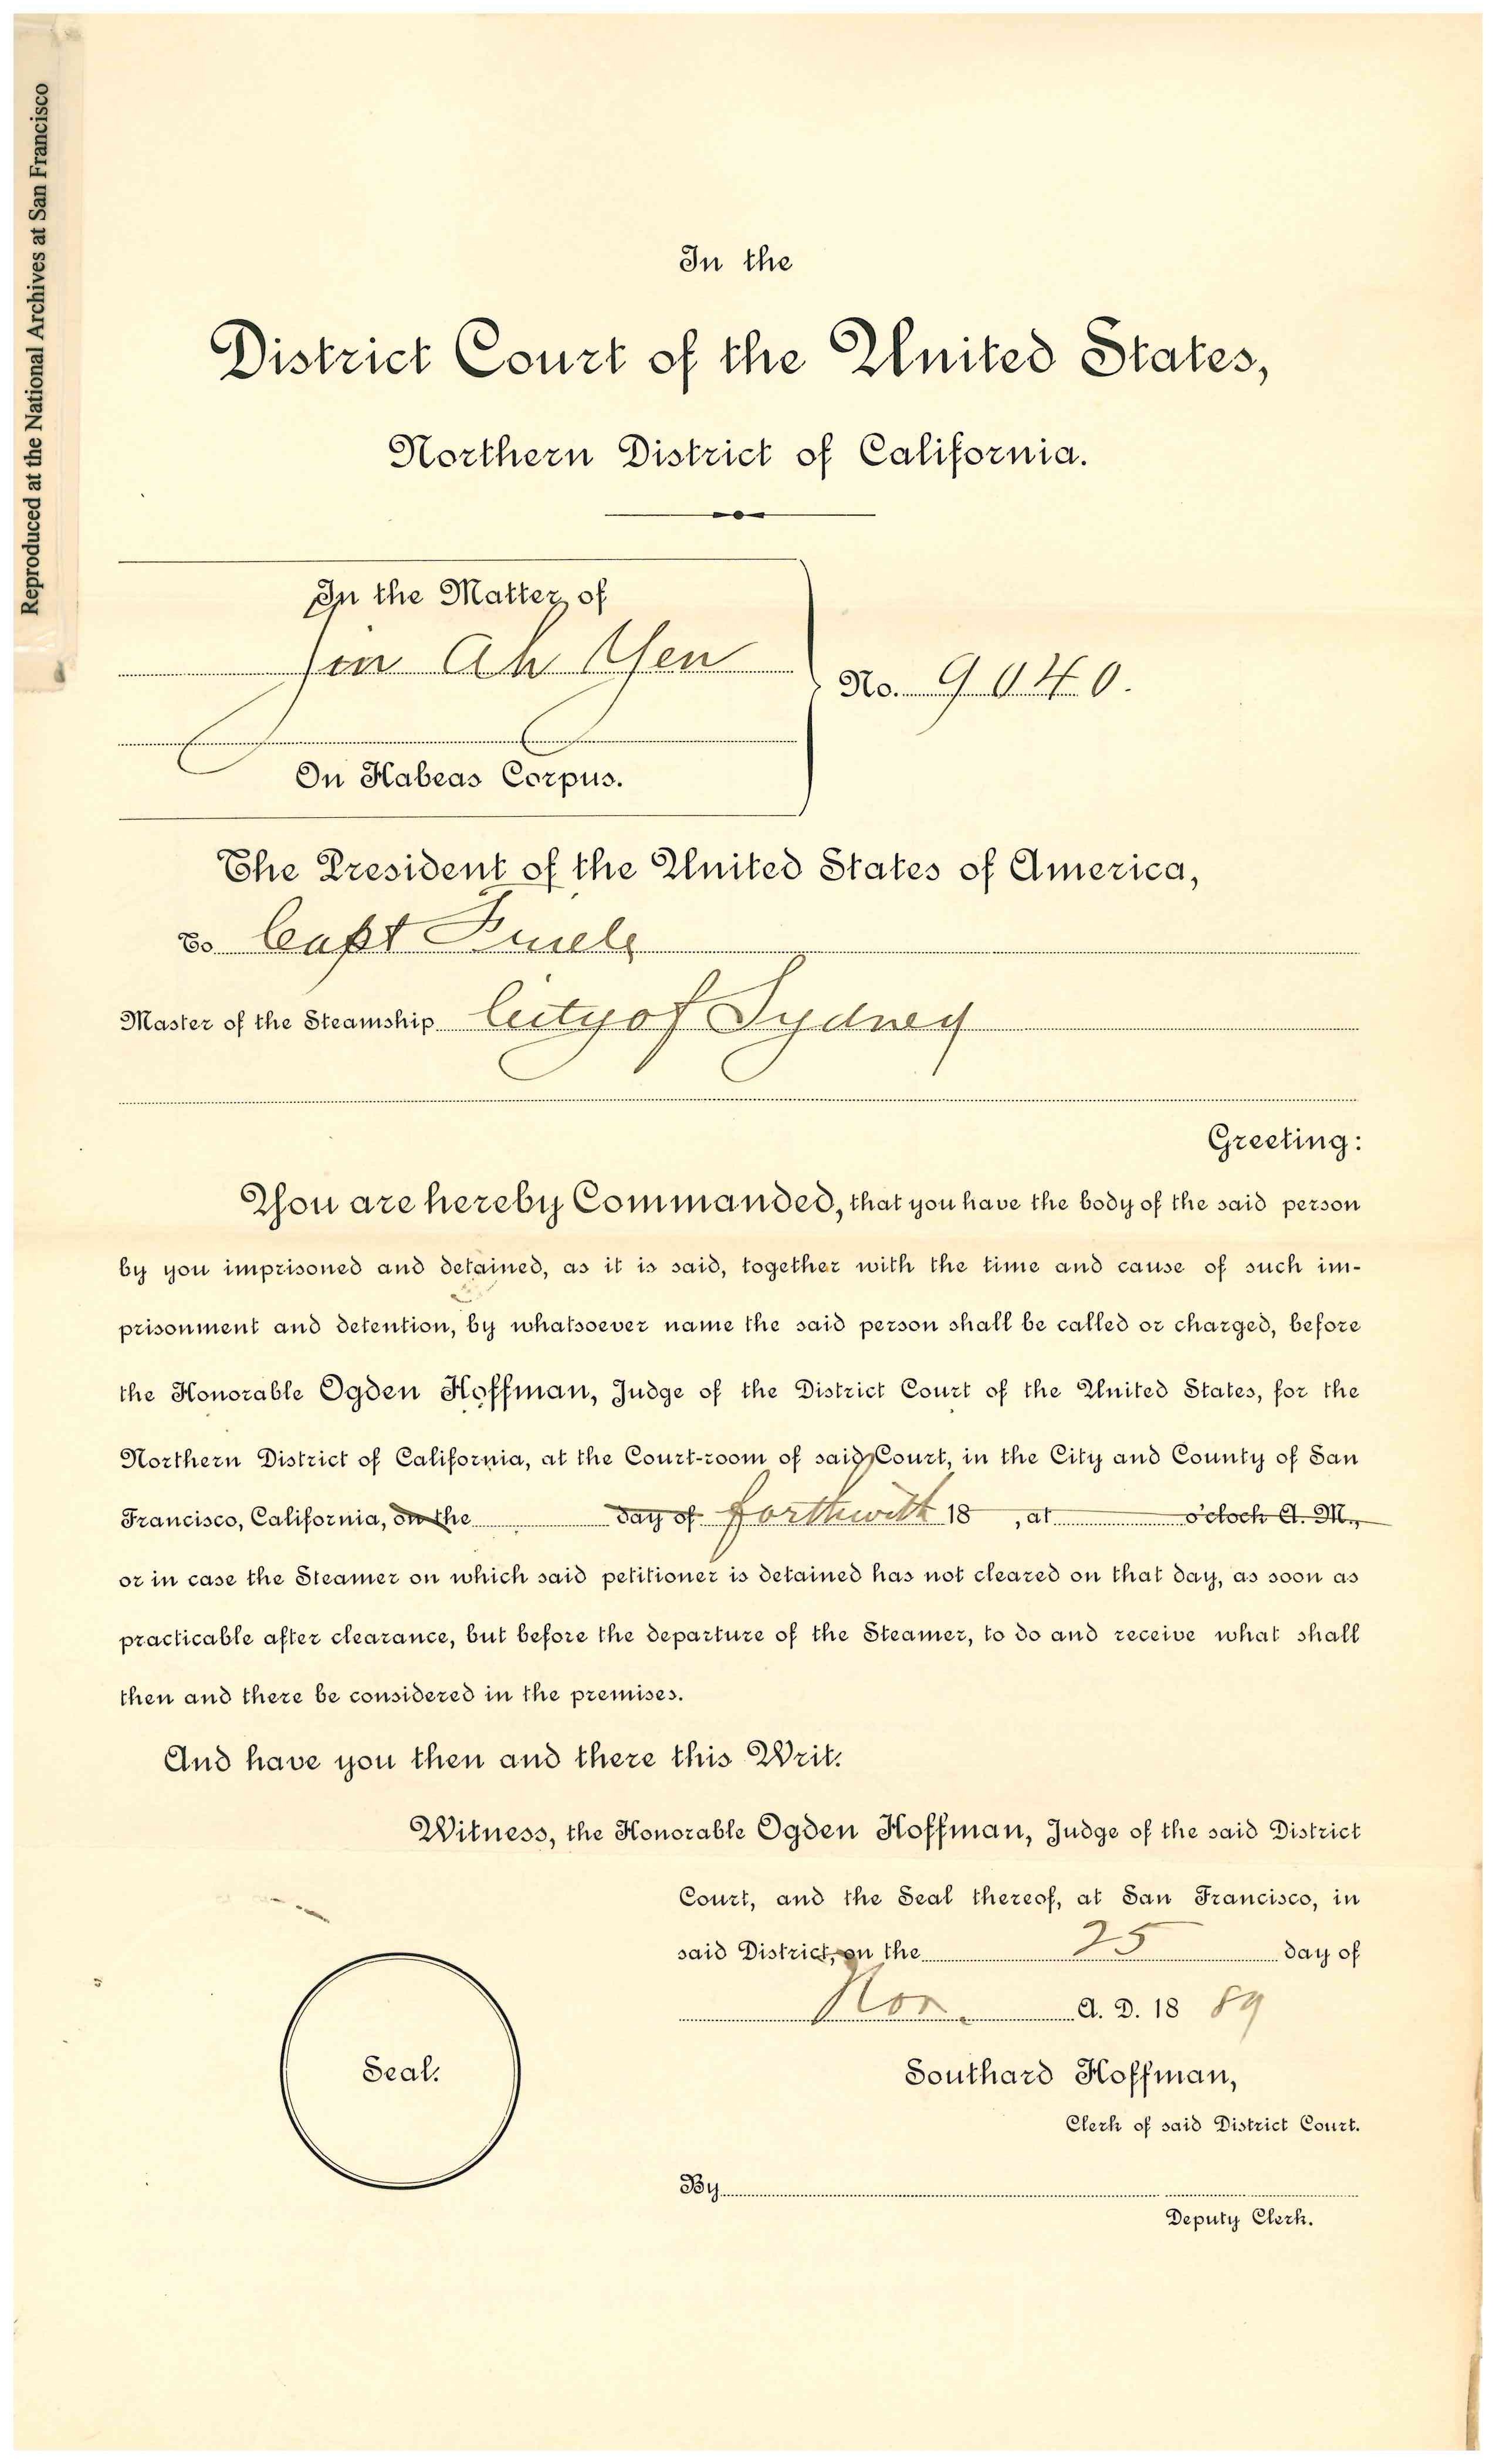 Reproduced at the National Archives at San Francisco
In the
District Court of the United States,
Northern District of California.
In the Matter of
Jin Ah Yen
No. 9040.
On Habeas Corpus.
The President of the United States of America,
To Capt
Master of the Steamship City of Sydney
Greeting:
You are hereby Commanded, that you have the body of the said person
by you imprisoned and detained, as it is said, together with the time and cause of such im-
prisonment and detention, by whatsoever name the said person shall be called or charged, before
the Honorable Ogden Hoffman, Judge of the District Court of the United States, for the
Northern District of California, at the Court-room of said Court, in the City and County of San
Francisco, California, on the day of forthwith 18 , at o'clock A. M.,
or in case the Steamer on which said petitioner is detained has not cleared on that day, as soon as
practicable after clearance, but before the departure of the Steamer, to do and receive what shall
then and there be considered in the premises.
And have you then and there this Writ.
Witness, the Honorable Ogden Hoffman, Judge of the said District
Court, and the Seal thereof, at San Francisco, in
said District, on the 25 day of
Nov. A. D. 18 89
Seal.
Southard Hoffman,
Clerk of said District Court.
By
Deputy Clerk.